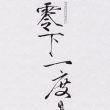 零下一度